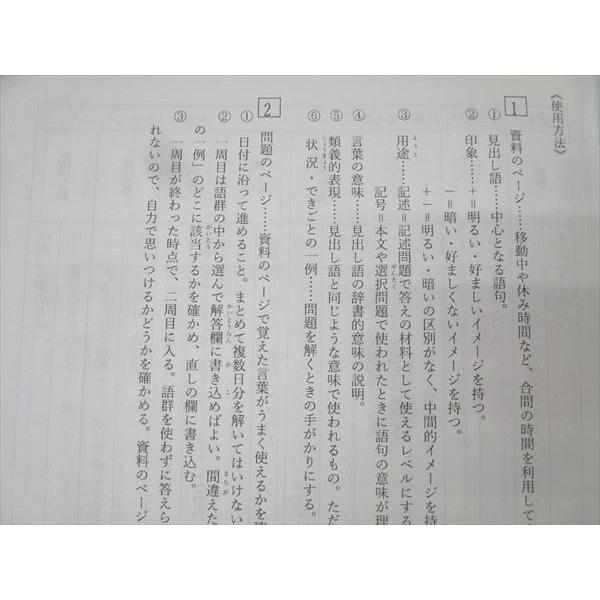 《使用方法》
1 資料のページ……移動中や休み時間など、合間の時間を利用して
① 見出し語……中心となる語句。
② 印象……＋＝明るい・好ましいイメージを持つ。
－＝暗い・好ましくないイメージを持つ。
＋－＝明るい・暗いの区別がなく、中間的イメージを持
③ 用途……記述＝記述問題で答えの材料として使えるレベルにする
記号＝本文や選択問題で使われたときに語句の意味が理
④ 言葉の意味……見出し語の辞書的意味の説明。
⑤ 類義的表現……見出し語と同じような意味で使われるもの。ただ
⑥ 状況・できごとの一例……問題を解くときの手がかりにする。
2 問題のページ……資料のページで覚えた言葉がうまく使えるかを確
① 日付に沿って進めること。まとめて複数日分を解いてはいけない
② 一周目は語群の中から選んで解答欄に書き込めばよい。間違えた
の一例」のどこに該当するかを確かめ、直しの欄に書き込む。
③ 一周目が終わった時点で、二周目に入る。語群を使わずに答えら
れないので、自力で思いつけるかどうかを確かめる。資料のページ